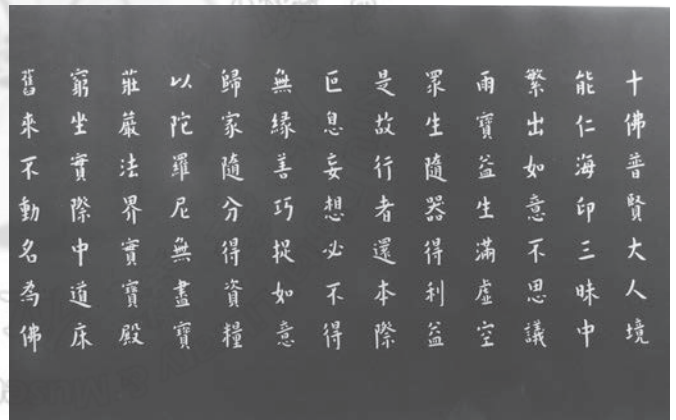 十佛普賢大人境
能仁海印三昧中
繁出如意不思議
雨寶益生滿虛空
眾生隨器得利益
是故行者還本際
叵息妄想必不得
無緣善巧捉如意
歸家隨分得資糧
以陀羅尼無盡寶
莊嚴法界實寶殿
窮坐實際中道床
舊來不動名為佛